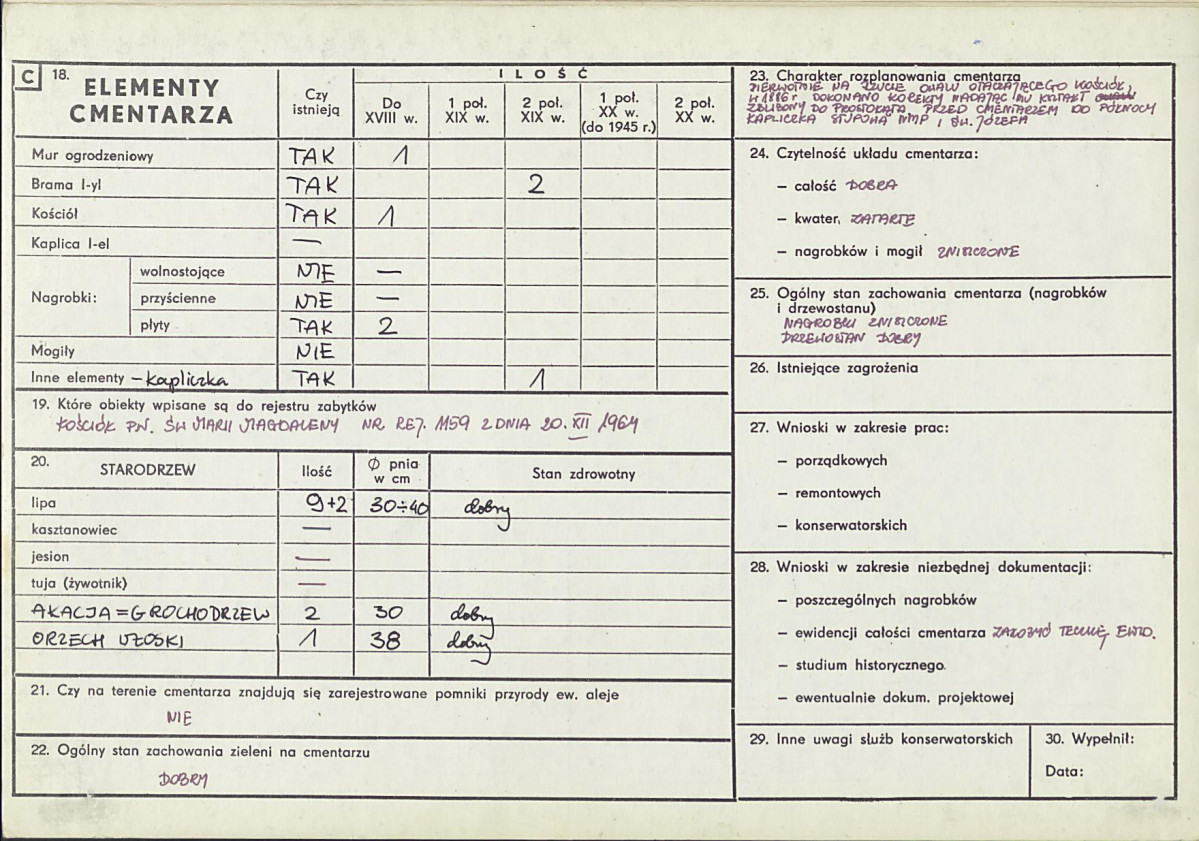 C 18. ELEMENTY CMENTARZA
Czy istnieją
ILOŚĆ
Do XVIII w.
1 poł. XIX w.
2 poł. XIX w.
1 poł. XX w. (do 1945 r.)
2 poł. XX w.
Mur ogrodzeniowy TAK 1
Brama l-yl TAK 2
Kościół TAK 1
Kaplica l-el —
Nagrobki:
wolnostojące NIE —
przyścienne NIE —
płyty TAK 2
Mogiły NIE
Inne elementy – kapliczka TAK 1
19. Które obiekty wpisane są do rejestru zabytków
KOŚCIÓŁ PW. ŚW MARII MAGDALENY NR REJ. 1159 Z DNIA 20. XII 1964
20. STARODRZEW
Ilość
Ø pnia w cm
Stan zdrowotny
lipa 9+2 30÷40 dobry
kasztanowiec —
jesion —
tuja (żywotnik) —
AKACJA = GROCHODRZEW 2 30 dobry
ORZECH WŁOSKI 1 38 dobry
21. Czy na terenie cmentarza znajdują się zarejestrowane pomniki przyrody ew. aleje
NIE
22. Ogólny stan zachowania zieleni na cmentarzu
DOBRY
23. Charakter rozplanowania cmentarza
PIERWOTNIE NA RZUCIE OWALU OTACZAJĄCEGO KOŚCIÓŁ,
W 1886 r DOKONANO KOREKTY NADAJĄC MU KSZTAŁT
ZBLIŻONY DO PROSTOKĄTA PRZED CMENTARZEM OD PÓŁNOCY
KAPLICZKA SŁUPOWA NMP I ŚW. JÓZEFA
24. Czytelność układu cmentarza:
– całość DOBRA
– kwater, ZATARTE
– nagrobków i mogił ZNISZCZONE
25. Ogólny stan zachowania cmentarza (nagrobków
i drzewostanu)
NAGROBKI ZNISZCZONE
DRZEWOSTAN DOBRY
26. Istniejące zagrożenia
27. Wnioski w zakresie prac:
– porządkowych
– remontowych
– konserwatorskich
28. Wnioski w zakresie niezbędnej dokumentacji:
– poszczególnych nagrobków
– ewidencji całości cmentarza ZAŁOŻYĆ TECZKĘ EWID.
– studium historycznego.
– ewentualnie dokum. projektowej
29. Inne uwagi służb konserwatorskich
30. Wypełnił:
Data: